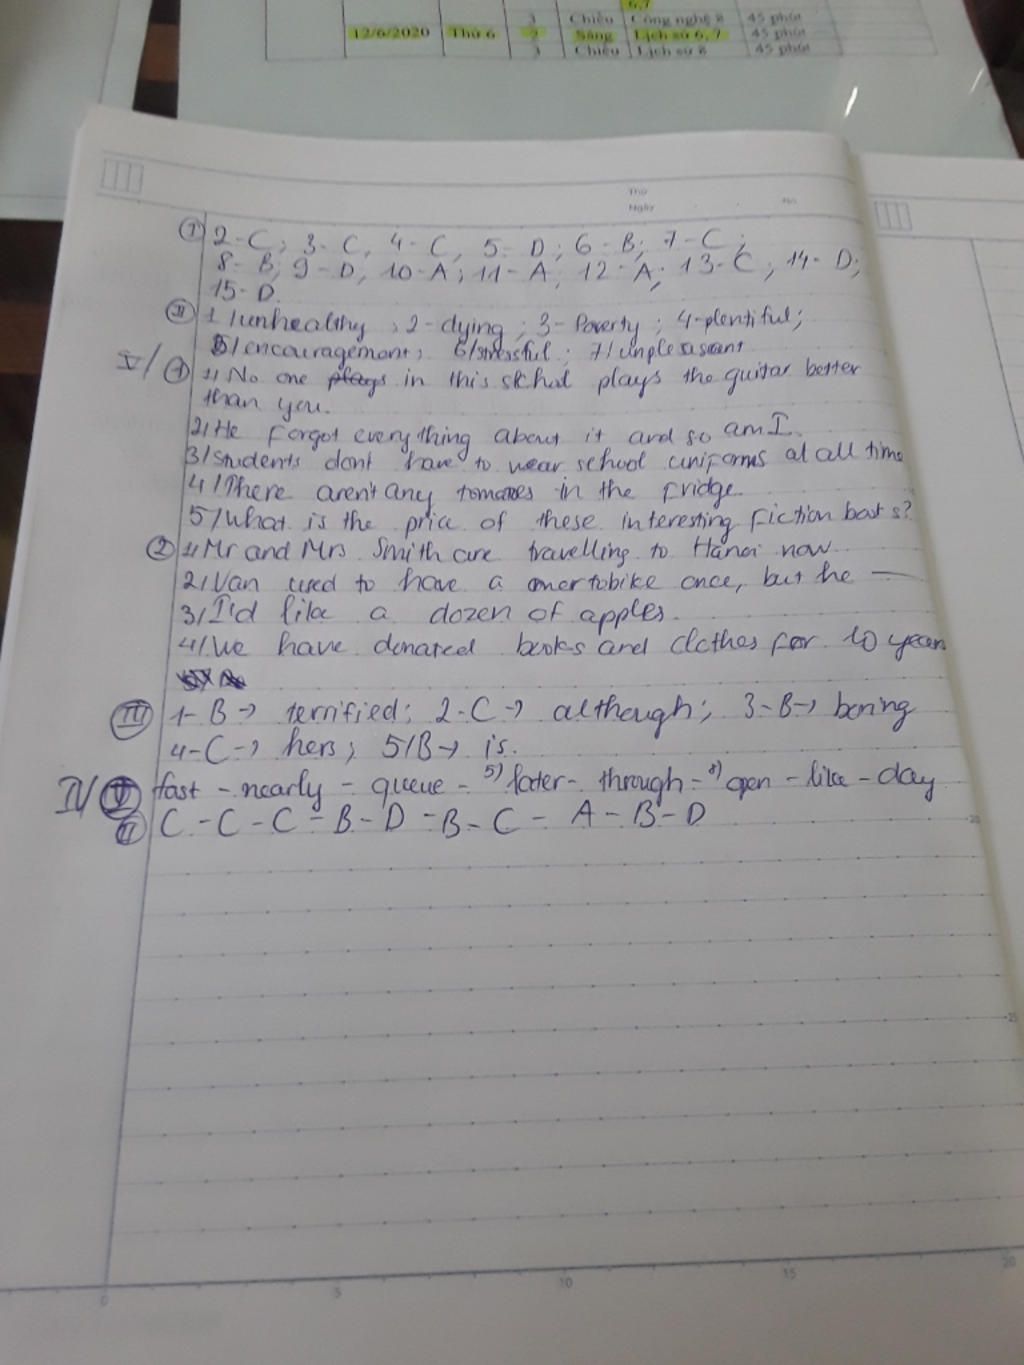 6,7
3 Chiều Công nghệ 8 45 phút
12/6/2020 Thứ 6 2 Sáng Lịch sử 6, 7 45 phút
3 Chiều Lịch sử 8 45 phút
Thứ
Ngày No.
I 2-C; 3-C, 4-C, 5-D; 6-B; 7-C;
8-B; 9-D; 10-A; 11-A; 12-A; 13-C; 14-D;
15-D.
II 1/unhealthy; 2-dying; 3-Poverty; 4-plentiful;
5/encouragement; 6/stressful; 7/unpleasant
V/ 1 1/ No one plays in this school plays the guitar better
than you.
2/ He forgot everything about it and so am I.
3/ Students don't have to wear school uniforms at all time
4/ There aren't any tomatoes in the fridge.
5/ What is the price of these interesting fiction books?
2 1/ Mr and Mrs Smith are travelling to Hanoi now.
2/ Van used to have a motorbike once, but he —
3/ I'd like a dozen of apples.
4/ We have donated books and clothes for 10 years
III 1-B→ terrified; 2-C→ although; 3-B→ boring
4-C→ hers; 5/B→ is.
IV/ I fast - nearly - queue - 5) later - through - 8) open - like - day
II C - C - C - B - D - B - C - A - B - D
20
25
0 5 10 15 20